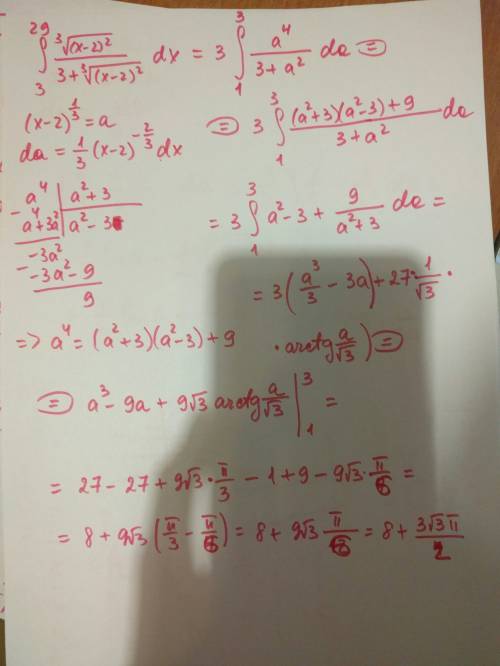 29
∫ ∛(x-2)² / 3+∛(x-2)² dx = 3 ∫₁³ a⁴ / 3+a² da =
3
(x-2)^(1/3) = a
= 3 ∫₁³ (a²+3)(a²-3)+9 / 3+a² da
da = 1/3 (x-2)^(-2/3) dx
- a⁴ | a²+3
a⁴+3a² | a²-3
= 3 ∫₁³ a²-3 + 9/(a²+3) da =
-3a²
- -3a²-9
9
= 3(a³/3 - 3a) + 27·1/√3 ·
=> a⁴ = (a²+3)(a²-3)+9
· arctg a/√3) =
= a³-9a + 9√3 arctg a/√3 |₁³ =
= 27-27+9√3·π/3 -1+9-9√3·π/6 =
= 8+9√3 (π/3 - π/6) = 8+9√3 π/6 = 8 + 3√3π/2